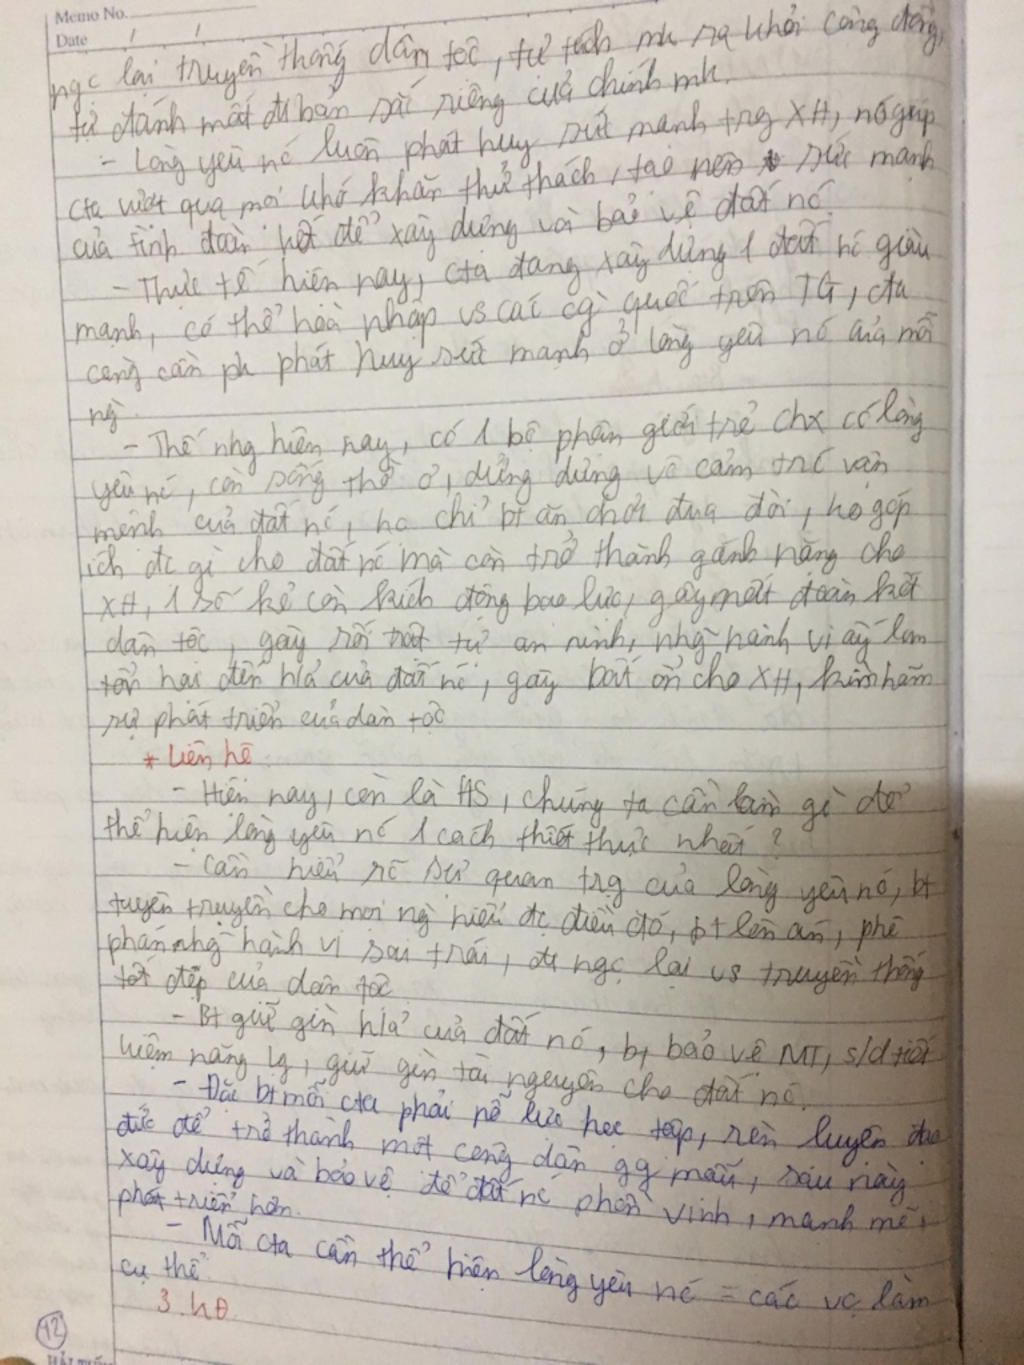 Memo No.
Date / /
ngc lại truyền thống dân tộc, tự tách mk ra khỏi cộng đồng,
tự đánh mất đi bản sắc riêng của chính mk.
- Lòng yêu nc luôn phát huy sức mạnh trg XH, nó giúp
cta vượt qua mọi khó khăn thử thách, tạo nên sức mạnh
của tình đoàn kết để xây dựng và bảo vệ đất nc.
- Thực tế hiện nay, cta đang xây dựng 1 đất nc giàu
mạnh, có thể hoà nhập vs các cg quốc trên TG, cta
càng cần ph phát huy sức mạnh ở lòng yêu nc của mỗi
ng.
- Thế nhg hiện nay, có 1 bộ phận giới trẻ chx có lòng
yêu nc, còn sống thờ ơ, dửng dưng vô cảm trc vận
mệnh của đất nc, họ chỉ bt ăn chơi đua đòi, ko góp
ích đc gì cho đất nc mà còn trở thành gánh nặng cho
XH, 1 số kẻ còn kích động bạo lực, gây mất đoàn kết
dân tộc, gây rối trật tự an ninh, nhg hành vi ấy làm
tổn hại đến h/a của đất nc, gây bất ổn cho XH, kìm hãm
sự phát triển của dân tộc
* Liên hệ
- Hiện nay, còn là HS, chúng ta cần làm gì để
thể hiện lòng yêu nc 1 cách thiết thực nhất?
- Cần hiểu rõ sự quan trg của lòng yêu nc, bt
tuyên truyền cho mọi ng hiểu đc điều đó, bt lên án, phê
phán nhg hành vi sai trái, đi ngc lại vs truyền thống
tốt đẹp của dân tộc
- Bt giữ gìn h/a của đất nc, bt bảo vệ MT, s/d tiết
kiệm năng lg, giữ gìn tài nguyên cho đất nc.
- Đặc bt mỗi cta phải nỗ lực học tập, rèn luyện đạo
đức để trở thành một công dân gg mẫu, sau này
xây dựng và bảo vệ để đất nc phồn vinh, mạnh mẽ,
phát triển hơn.
- Mỗi cta cần thể hiện lòng yêu nc = các vc làm
cụ thể
3. KĐ
12